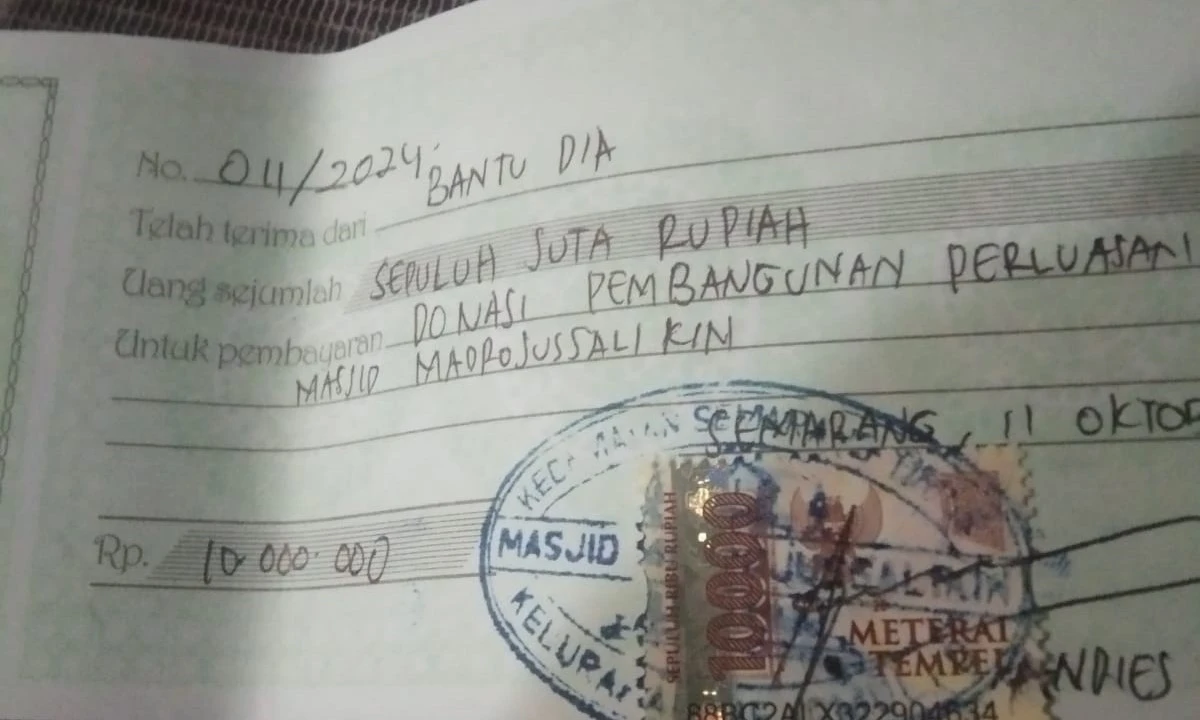 No. 04/2024
Telah terima dari BANTU DIA
Uang sejumlah SEPULUH JUTA RUPIAH
Untuk pembayaran DONASI PEMBANGUNAN PERLUASAN
MASJID MADROJUSSALIKIN
SEMARANG, 11 OKTO
Rp. 10.000.000
MASJID
SEPULUH RIBU RUPIAH
10000
METERAI
TEMPEL
ANDIES